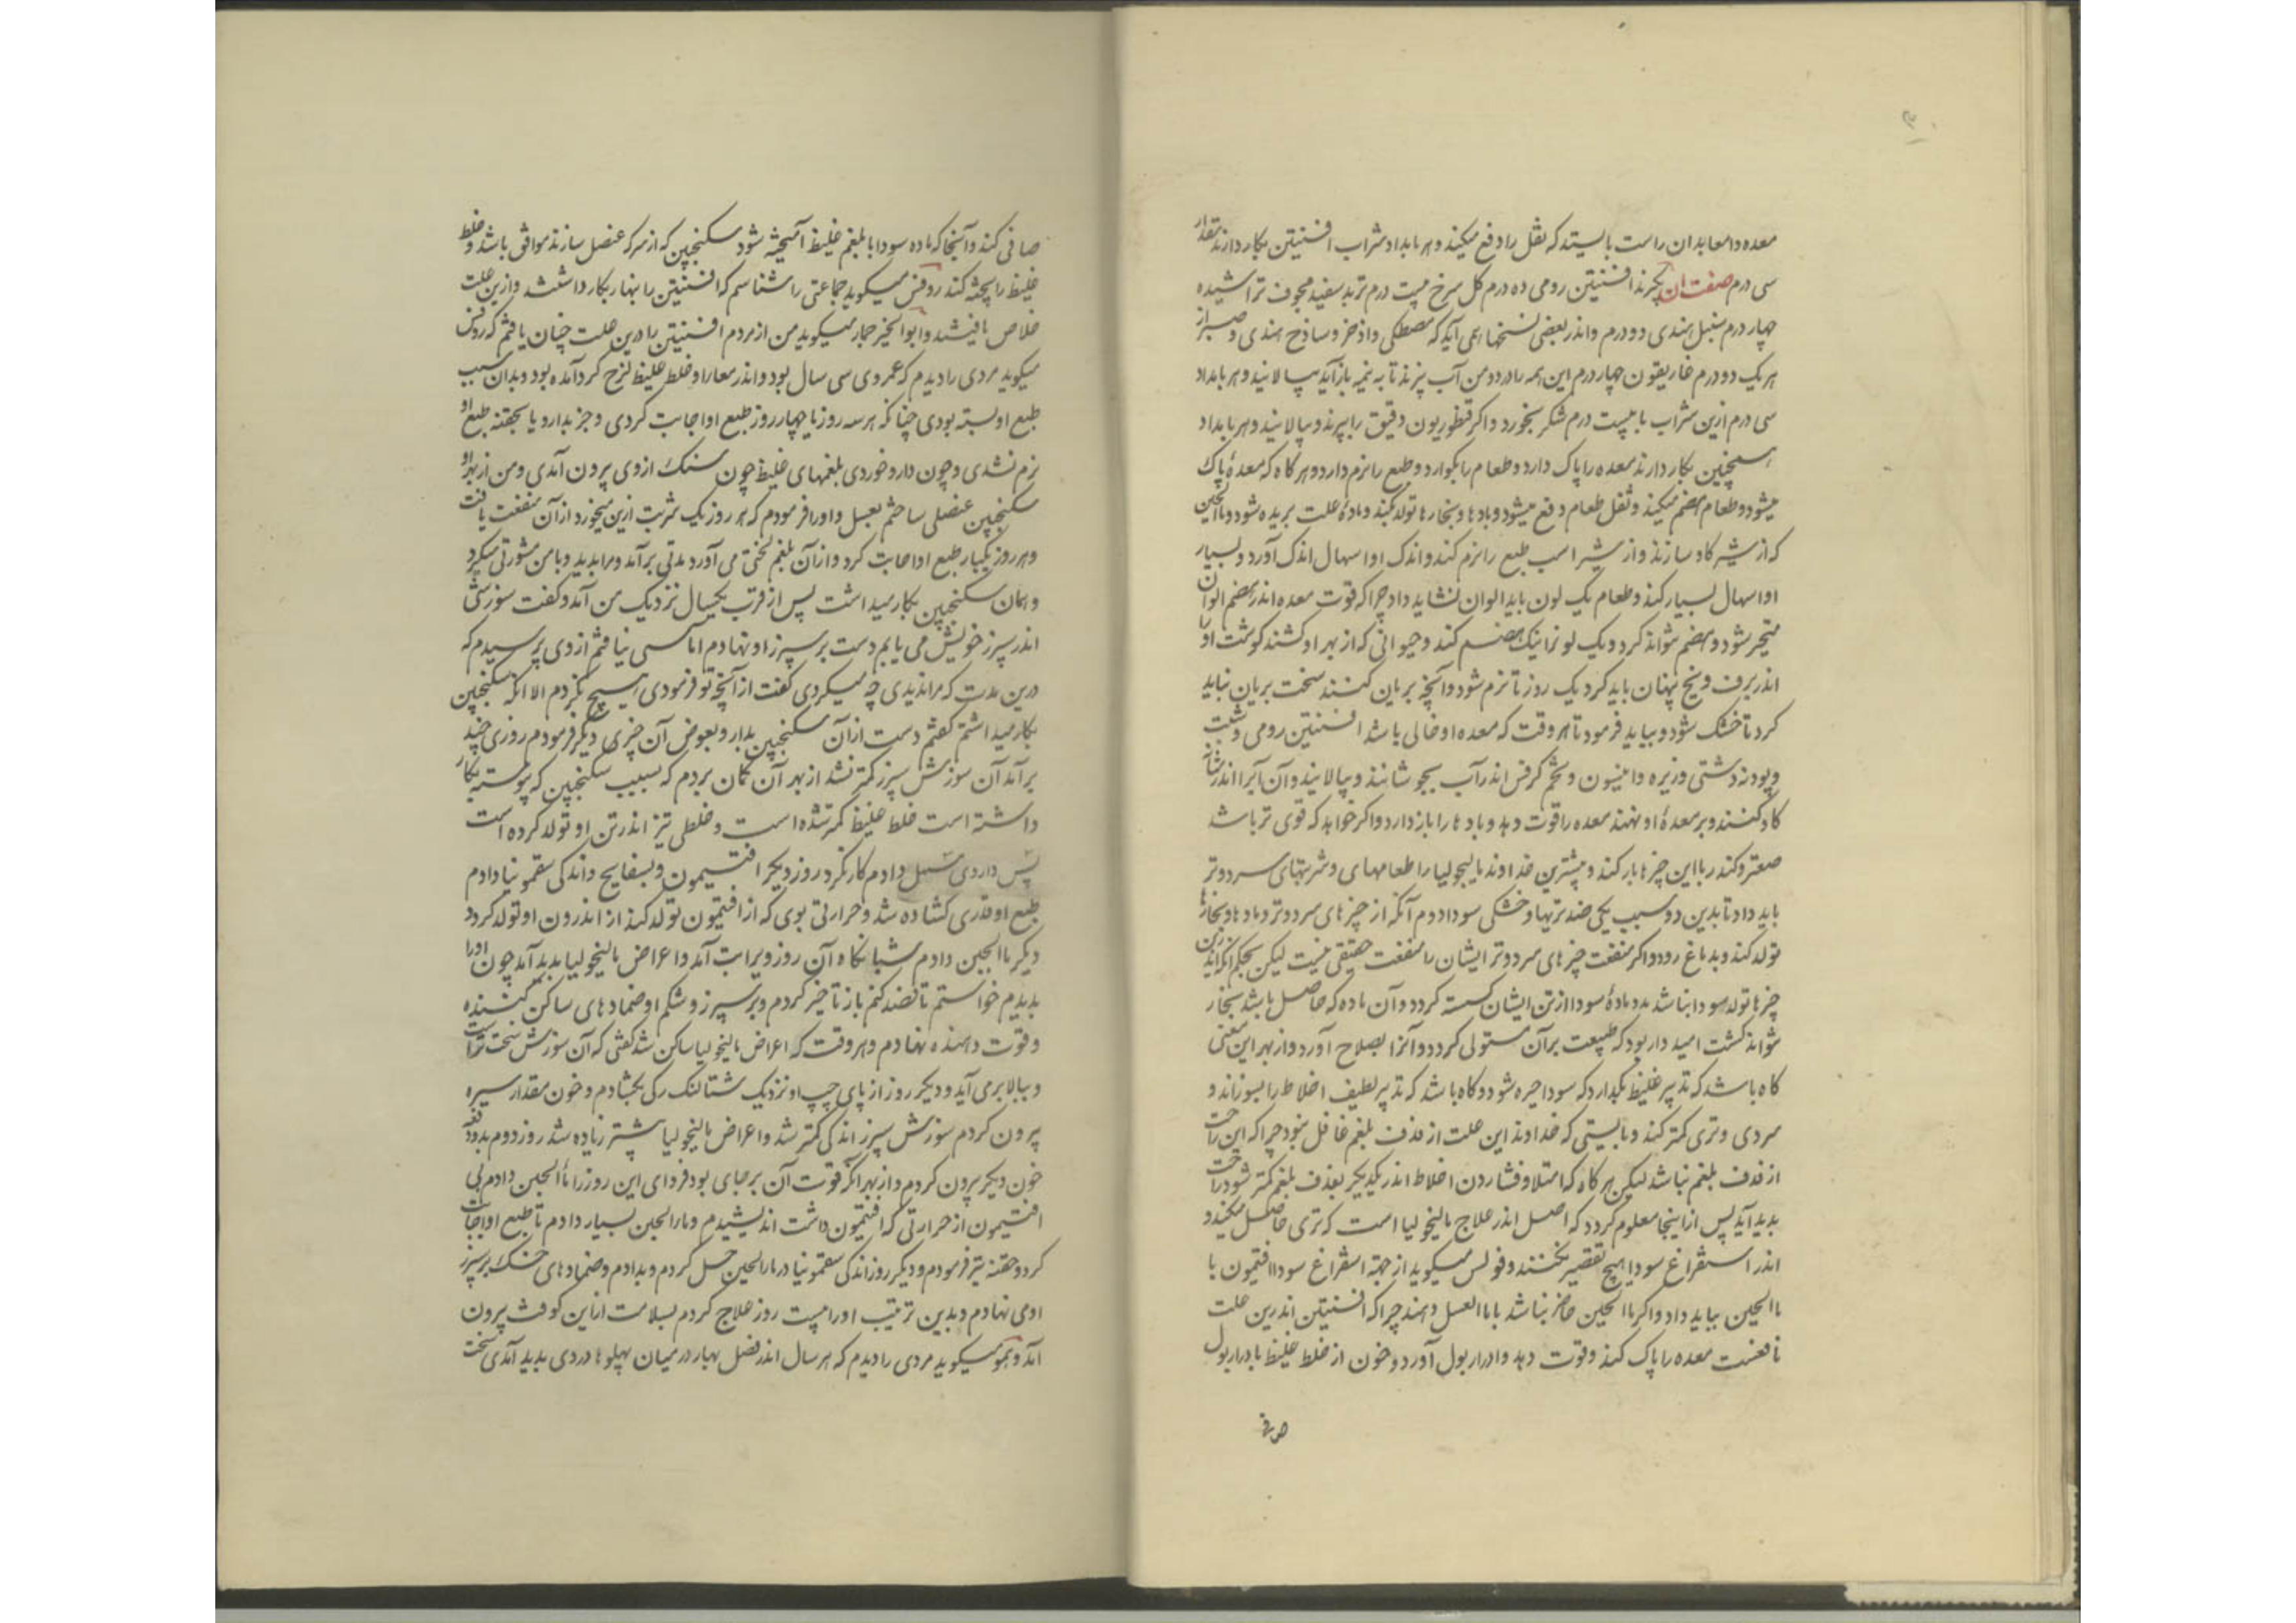 معده و امعا بدان راست بایستد که ثقل را دفع میکند و هر بامداد شراب افسنتین بکار دارند مقدار
سی درم صفت آن بگیرند افسنتین رومی ده درم کل سرخ بیست درم تربد سفید مجوف تراشیده
چهار درم سنبل هندی دو درم و اندر بعضی نسخها همی آید که مصطکی و اذخر و ساذج هندی و صبر از
هر یک دو درم غاریقون چهار درم این همه را در دو من آب بپزند تا به نیمه باز آید بپالایند و هر بامداد
سی درم ازین شراب با بیست درم شکر بخورد و اکر قنطوریون دقیق را بپزند و بپالایند و هر بامداد
بکار دارند معده را پاک دارد و طعام را بکوارد و طبع را نرم دارد و هر کاه که معده پاک
میشود و طعام هضم میکند و ثقل طعام دفع میشود و بادها و بخارها تولد نکند و ماده علت بریده شود و ماالجبن
که از شیر کاو سازند و از شیر اسب طبع را نرم کند و اندک او اسهال اندک آورد و بسیار
او اسهال بسیار کند و طعام یک لون باید الوان نشاید داد چرا که قوت معده اندر هضم الوان
متحیر شود و هضم نتواند کرد و یک لون را نیک هضم کند و حیوانی که از بهر او کشند کوشت او را
اندر برف و یخ پنهان باید کرد یک روز تا نرم شود و آنچه بریان کنند سخت بریان نباید
کرد تا خشک شود و بباید فرمود تا هر وقت که معده او خالی باشد افسنتین رومی و شبت
و پودنه دشتی و زیره و انیسون و تخم کرفس اندر آب بجوشانند و بپالایند و آن آبرا اندر مثانه
کاو کنند و بر معده او نهند معده را قوت دهد و بادها را باز دارد و اکر خواهد که قوی تر باشد
صعتر و کندر با این چیزها بار کند و بیشترین خداوند مالیخولیا را طعامهای و شربتهای سرد و تر
باید داد تا بدین دو سبب یکی ضد تریها و خشکی سودا دوم آنکه از چیزهای سرد و تر بادها و بخارها
تولد کند و بدماغ رود و اکر منفعت چیزهای سرد و تر ایشان را منفعت حقیقی نیست لیکن بحکم آنکه ازین
چیزها تولد سودا نباشد مدد ماده سودا از تن ایشان کسسته کردد و آن ماده که حاصل باشد بخار
تواند کشت امید دار بود که طبیعت بر آن مستولی کردد و آنرا بصلاح آورد و از بهر این معنی
کاه باشد که تدبیر غلیظ بکدارد که سودا خیره شود و کاه باشد که تدبیر لطیف اخلاط را بسوزاند و
سردی و تری کمتر کند و بایستی که خداوند این علت از قذف بلغم غافل نبود چرا که این راحت
از قذف بلغم نباشد لیکن هر کاه که امتلا و فشاردن اخلاط اندر یکدیکر بقذف بلغم کمتر شود راحت
بدید آید پس از اینجا معلوم کردد که اصل اندر علاج مالیخولیا است که تری حاصل میکند و
اندر استفراغ سودا هیچ تقصیر نکنند و فولس میکوید از جهة استفراغ سودا افتیمون با
ماالجبن بباید داد و اکر ماالجبن حاضر نباشد با ماالعسل دهند چرا که افسنتین اندرین علت
نافعست معده را پاک کند و قوت دهد و ادرار بول آورد و خون از خلط غلیظ با درار بول
صافی
صافی کند و آنجا که ماده سودا با بلغم غلیظ آمیخته شود سکنجبین که از سرکه عنصل سازند موافق باشد و خلط
غلیظ را پخته کند روفس میکوید جماعتی را شناسم که افسنتین را بنهار بکار داشتند و ازین علت
خلاص یافتند و ابوالخیر خمار میکوید من از مردم افسنتین را درین علت چنان یافتم که روفس
میکوید مردی را دیدم که عمر وی سی سال بود و اندر معا را و خلط غلیظ لزج کرد آمده بود و بدان سبب
طبع او بسته بودی چنانکه هر سه روز یا چهار روز طبع او اجابت کردی و جز بدارو یا بحقنه طبع او
نرم نشدی و چون دارو خوردی بلغمهای غلیظ چون سنک از وی بیرون آمدی و من از بهر او
سکنجبین عنصلی ساختم بعسل و اورا فرمودم که هر روز یک شربت ازین میخورد از آن منفعت یافت
و هر روز یکبار طبع او اجابت کرد و از آن بلغم لختی می آورد مدتی بر آمد و مرا بدید و با من مشورتی نکرد
و همان سکنجبین بکار میداشت پس از قرب یکسال نزدیک من آمد و کفت سوزشی
اندر سپرز خویش می یابم دست بر سپرز او نهادم اماسی نیافتم از وی پرسیدم که
درین مدت که مرا ندیدی چه میکردی کفت از آنچه تو فرمودی هیچ نکردم الا آنکه سکنجبین
بکار میداشتم کفتم دست از آن سکنجبین بدار و بعوض آن چیزی دیکر فرمودم روزی چند
بر آمد آن سوزش سپرز کمتر نشد از بهر آن کمان بردم که بسبب سکنجبین که پیوسته بکار
داشته است خلط غلیظ کمتر شده است و خلطی تیز اندر تن او تولد کرده است
پس داروی مسهل دادم کار نکرد روز دیکر افتیمون و بسفایج و اندکی سقمونیا دادم
طبع او قدری کشاده شد و حرارتی بوی که از افتیمون تولد کند از اندرون او تولد کرد
دیکر ماالجبن دادم شبانکاه آن روز ویرا تب آمد و اعراض مالیخولیا بدید آمد چون او را
بدیدم خواستم تا فصد کنم باز تاخیر کردم و بر سپرز و شکم او ضمادهای ساکن کننده
و قوت دهنده نهادم و هر وقت که اعراض مالیخولیا ساکن شد کفتی که آن سوزش سخت تر است
و ببالا بر می آید و دیکر روز از پای چپ او نزدیک شتالنک رکی بکشادم و خون مقدار سیره
بیرون کردم سوزش سپرز اندکی کمتر شد و اعراض مالیخولیا بیشتر زیاده شد روز دوم بدو دفعه
خون دیکر بیرون کردم و از بهر آنکه قوت آن بر جای بود فردای این روز را ماالجبن دادم بی
افتیمون از حرارتی که افتیمون داشت اندیشیدم و ماءالجبن بسیار دادم تا طبع او اجابت
کرد و حقنه تیز فرمودم و دیکر روز اندکی سقمونیا در ماءالجبن حل کردم و بدادم و ضمادهای خنک بر سپرز
او می نهادم و بدین ترتیب او را بیست روز علاج کردم بسلامت از این کوفت بیرون
آمد و همو میکوید مردی را دیدم که هر سال اندر فصل بهار در میان پهلوها دردی بدید آمدی سخت